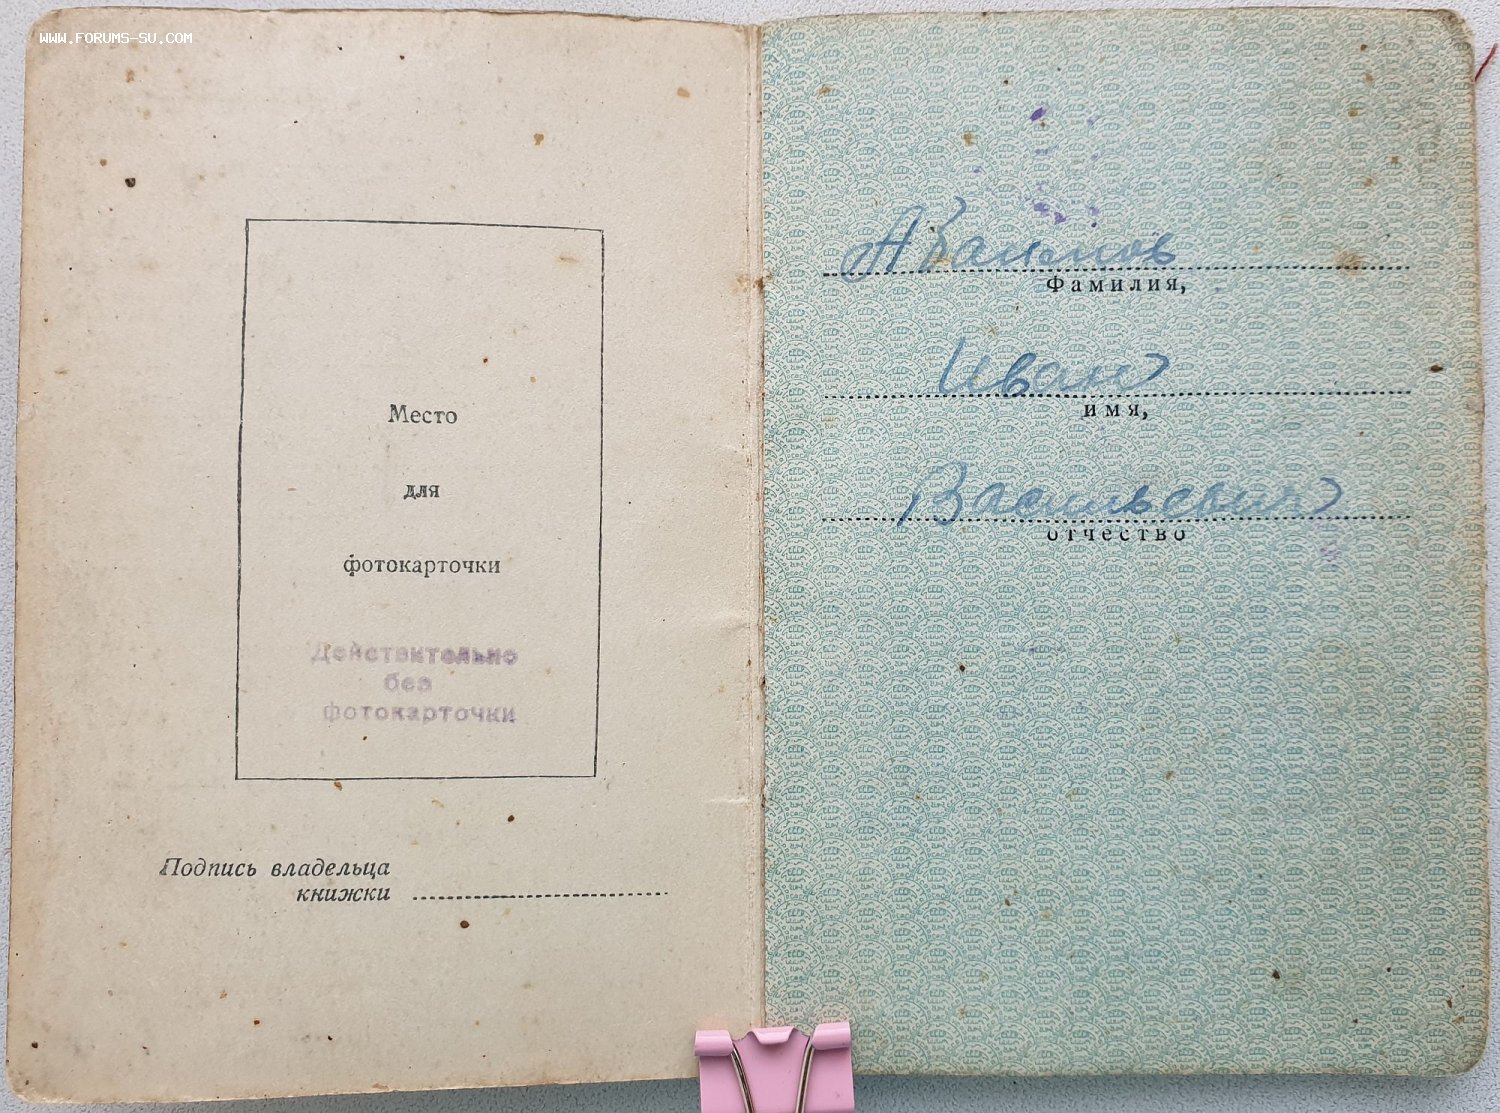 www.forums-su.com
Место
для
фотокарточки
Действительно
без
фотокарточки
Подпись владельца
книжки
Абаимов
Фамилия,
Иван
имя,
Васильевич
отчество